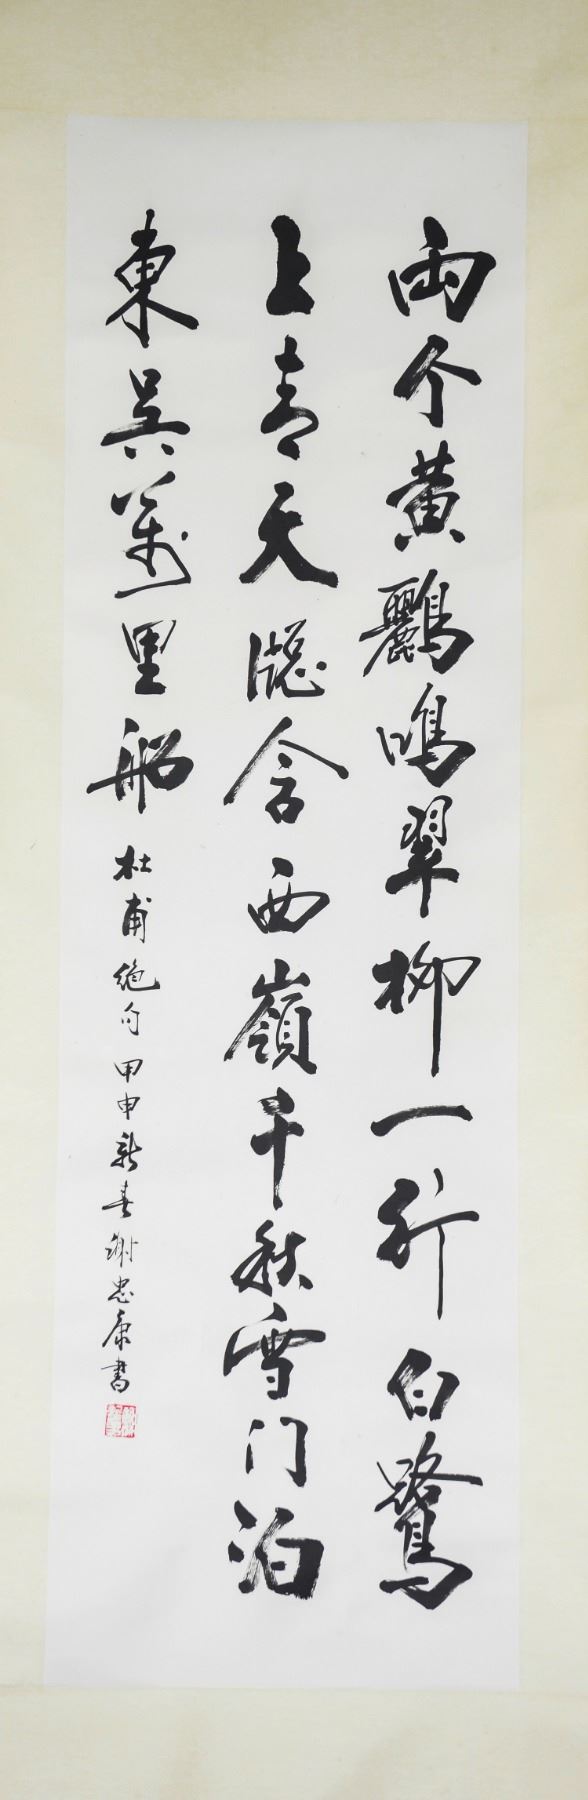 兩个黄鸝鳴翠柳一行白鷺
上青天牕含西嶺千秋雪门泊
東吴萬里船 杜甫絶句 甲申新春謝忠康書